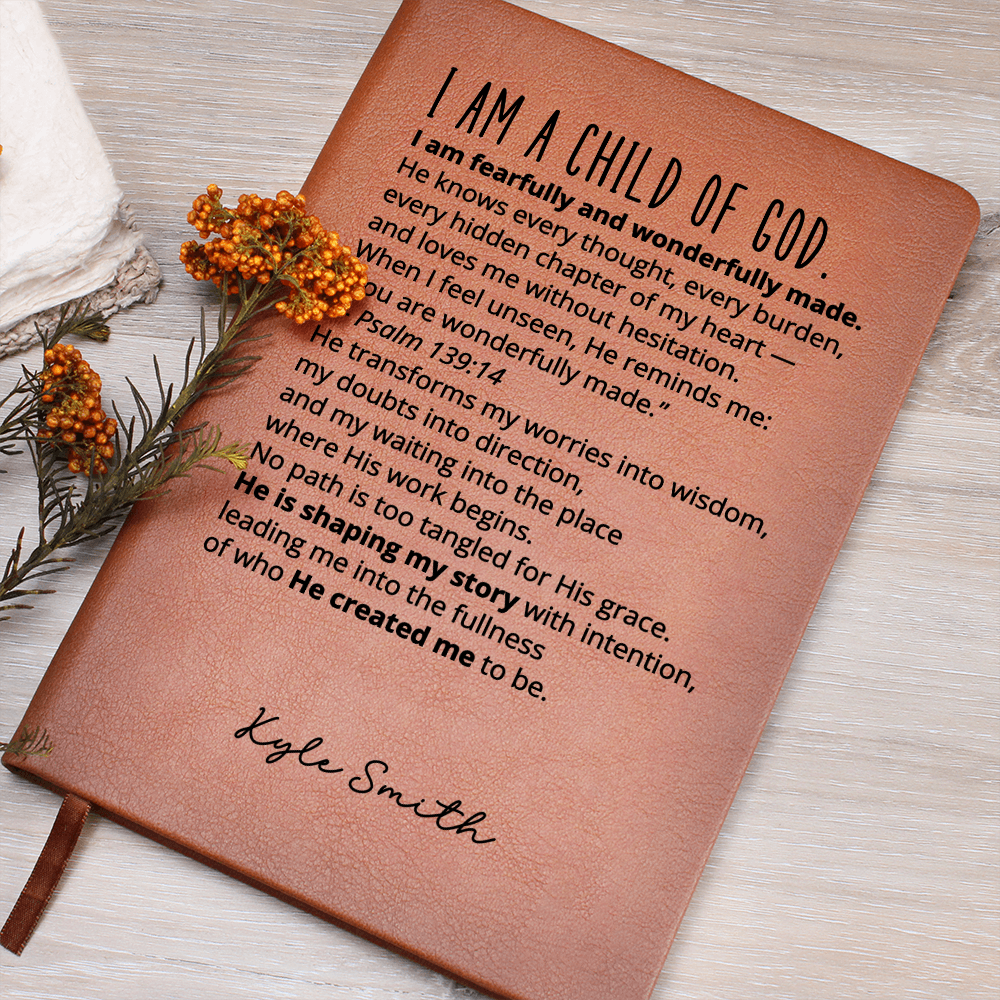 I AM A CHILD OF GOD.
I am fearfully and wonderfully made.
He knows every thought, every burden,
every hidden chapter of my heart —
and loves me without hesitation.
When I feel unseen, He reminds me:
ou are wonderfully made.”
Psalm 139:14
He transforms my worries into wisdom,
my doubts into direction,
and my waiting into the place
where His work begins.
No path is too tangled for His grace.
He is shaping my story with intention,
leading me into the fullness
of who He created me to be.
Kyle Smith